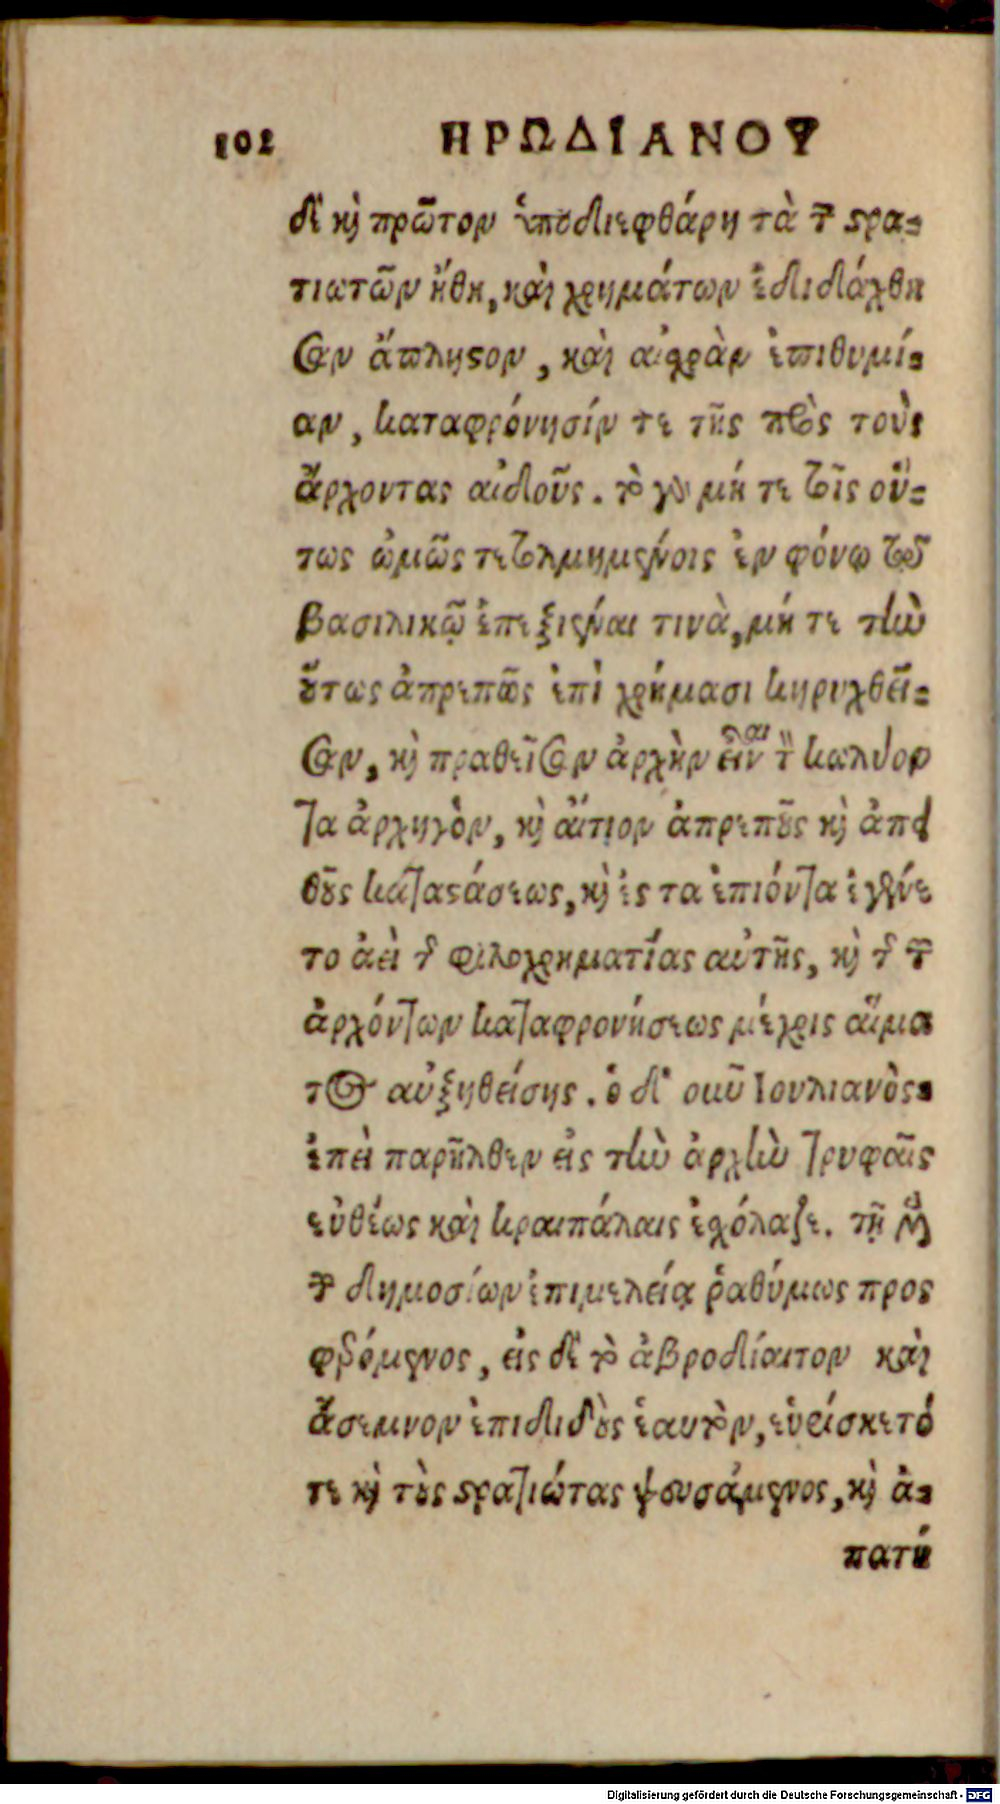 102 ΗΡΩΔΙΑΝΟΥ
δὲ καὶ πρῶτον ὑποδιεφθάρη τὰ τῶν στρα-
τιωτῶν ἤθη, καὶ χρημάτων ἐδιδάχθη
σαν ἄπληστον, καὶ αἰσχρὰν ἐπιθυμί-
αν, καταφρόνησίν τε τῆς πρὸς τοὺς
ἄρχοντας αἰδοῦς. τὸ γὰρ μή τε τοῖς οὕ-
τως ὠμῶς τετολμημένοις ἐν φόνῳ τοῦ
βασιλικῷ ἐπεξιέναι τινὰ, μή τε τὴν
οὕτως ἀπρεπῶς ἐπὶ χρήμασι κηρυχθεῖ-
σαν, καὶ πραθεῖσαν ἀρχὴν εἶν τ καλυον
τα ἀρχηγὸν, καὶ αἴτιον ἀπρεποῦς καὶ ἀπει
θοῦς καταστάσεως, καὶ ἐς τα ἐπιόντα ἐγένε
το ἀεὶ τῆς φιλοχρηματίας αὐτῆς, καὶ τῆς τῶν
ἀρχόντων καταφρονήσεως μέχρις αἵμα
τος αὐξηθείσης. ὁ δὲ οὖν Ιουλιανὸς
ἐπεὶ παρῆλθεν εἰς τὴν ἀρχὴν τρυφαῖς
εὐθέως καὶ κραιπάλαις ἐσχόλαζε. τῇ μὲν
τῶν δημοσίων ἐπιμελείᾳ ῥαθύμως προς
φερόμενος, εἰς δὲ τὸ ἁβροδίαιτον καὶ
ἄσεμνον ἐπιδιδοὺς ἑαυτὸν, εὑρίσκετό
τε καὶ τοὺς στρατιώτας ψευσάμενος, καὶ ἀ-
πατή